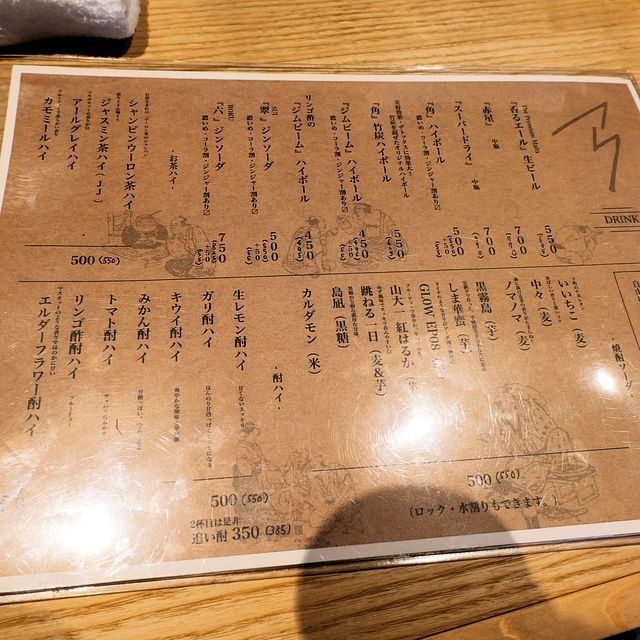 DRINK
The Premium Malt's
『香るエール』生ビール 550
『赤星』 中瓶 700
『スーパードライ』 中瓶 700
『角』ハイボール 500
濃いめ・コーラ割・ジンジャー割あり〼 +50
『角』竹炭ハイボール 550
『ジムビーム』ハイボール 450
濃いめ・コーラ割・ジンジャー割あり〼 +50
リンゴ酢の
『ジムビーム』ハイボール 450
SUI
『翠』ジンソーダ 500
濃いめ・コーラ割・ジンジャー割あり〼 +50
ROKU
『六』ジンソーダ 750
濃いめ・コーラ割・ジンジャー割あり〼 +50
・お茶ハイ・
シャンピンウーロン茶ハイ
ジャスミン茶ハイ(JJ)
アールグレイハイ
カモミールハイ
500(550)
・焼酎ソーダ・
いいちこ(麦)
中々(麦)
ノマノマ(麦)
黒霧島(芋)
しま華蜜(芋)
GLOW EP05
山大一 紅はるか
跳ねる一日(麦&芋)
島凪(黒糖)
カルダモン(米)
500(550)
(ロック・水割りもできます。)
・酎ハイ・
生レモン酎ハイ
甘くないスッキリ
ガリ酎ハイ
キウイ酎ハイ
みかん酎ハイ
トマト酎ハイ
リンゴ酢酎ハイ
フルーティー
エルダーフラワー酎ハイ
500(550)
2杯目は是非
追い酎 350(385)